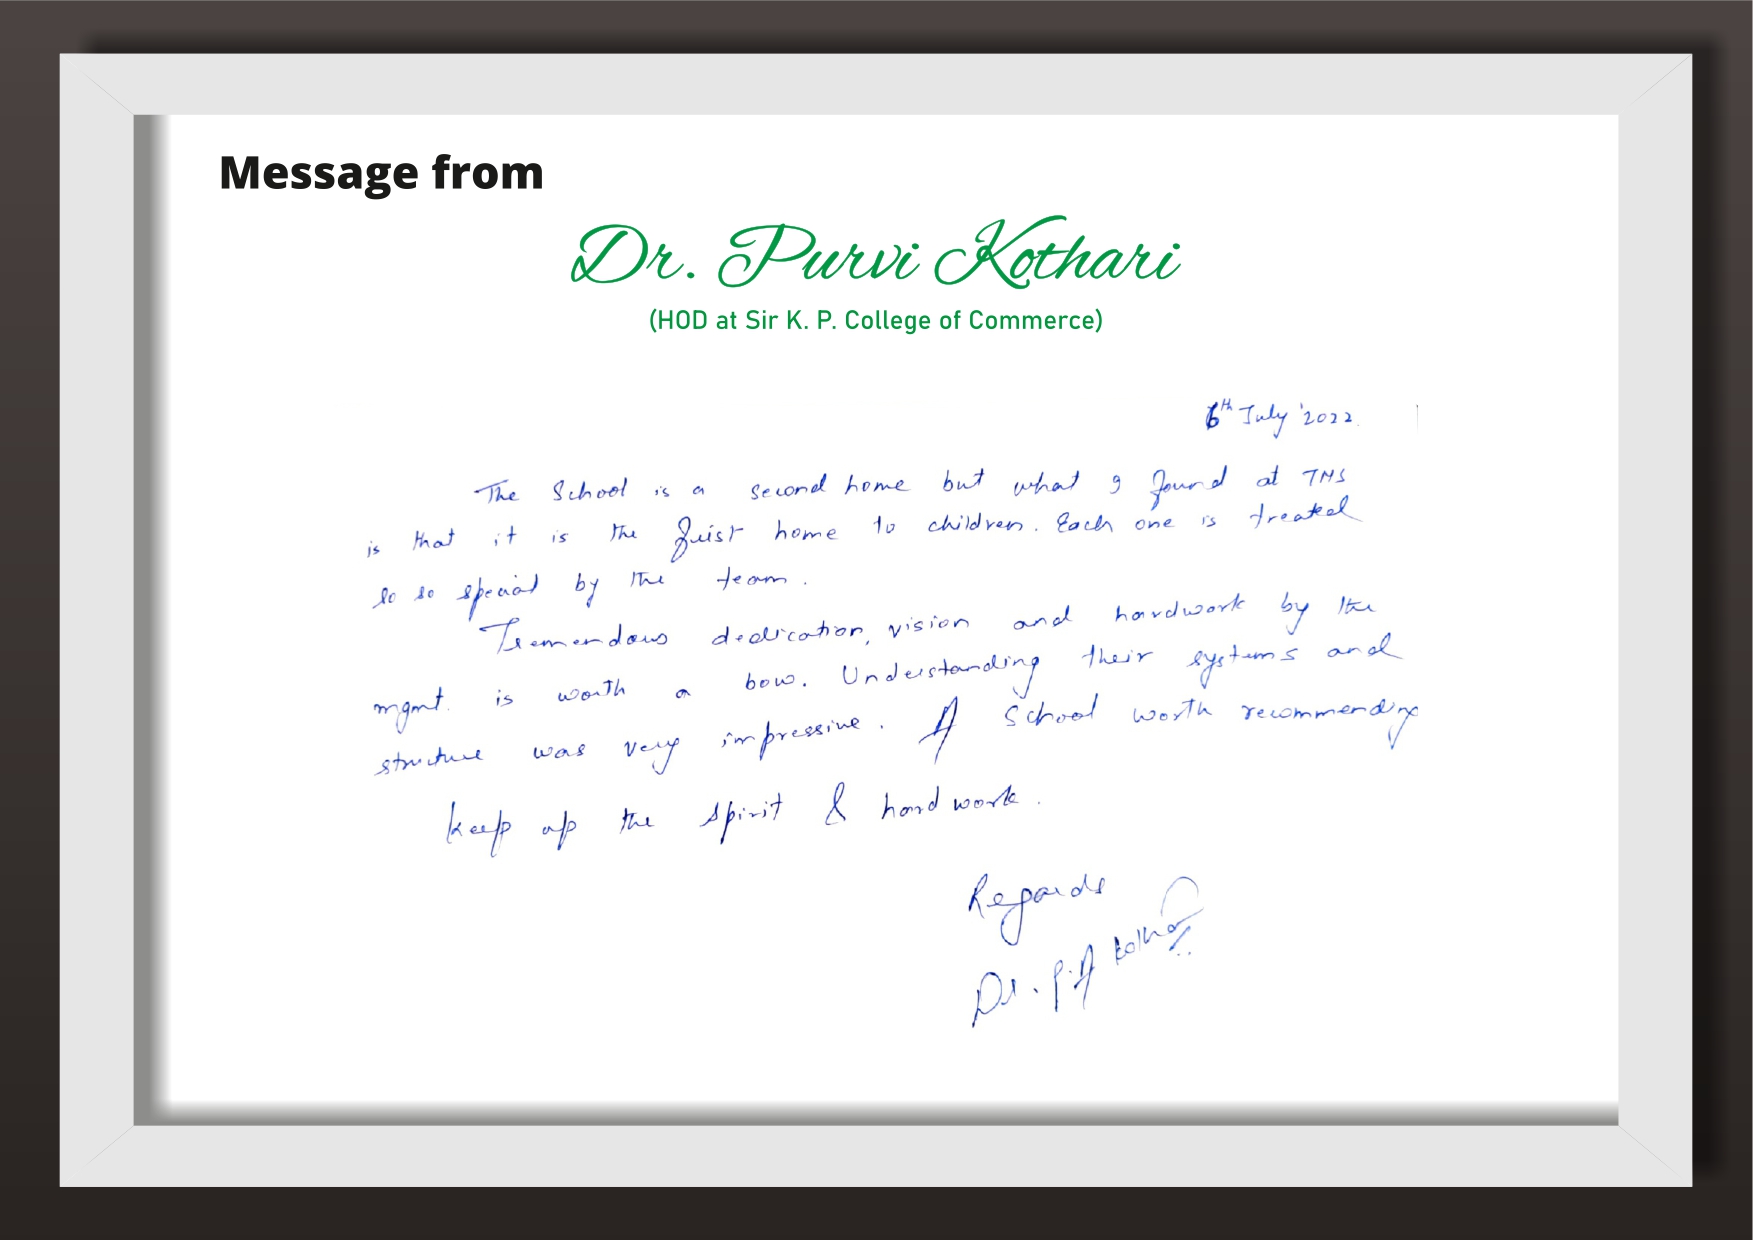 Message from
Dr. Purvi Kothari
(HOD at Sir K. P. College of Commerce)
6th July '2022.
The School is a second home but what I found at TNS
is that it is the first home to children. Each one is treated
so so special by the team.
Tremendous dedication, vision and hardwork by the
mgmt. is worth a bow. Understanding their systems and
structure was very impressive. A School worth recommending
keep up the spirit & hard work.
Regards
Dr. P. A Kothari